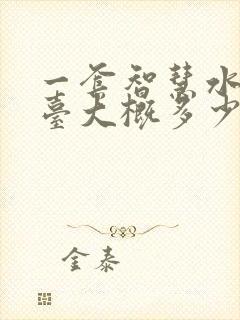 一套智慧水
臺大概多少
金泰